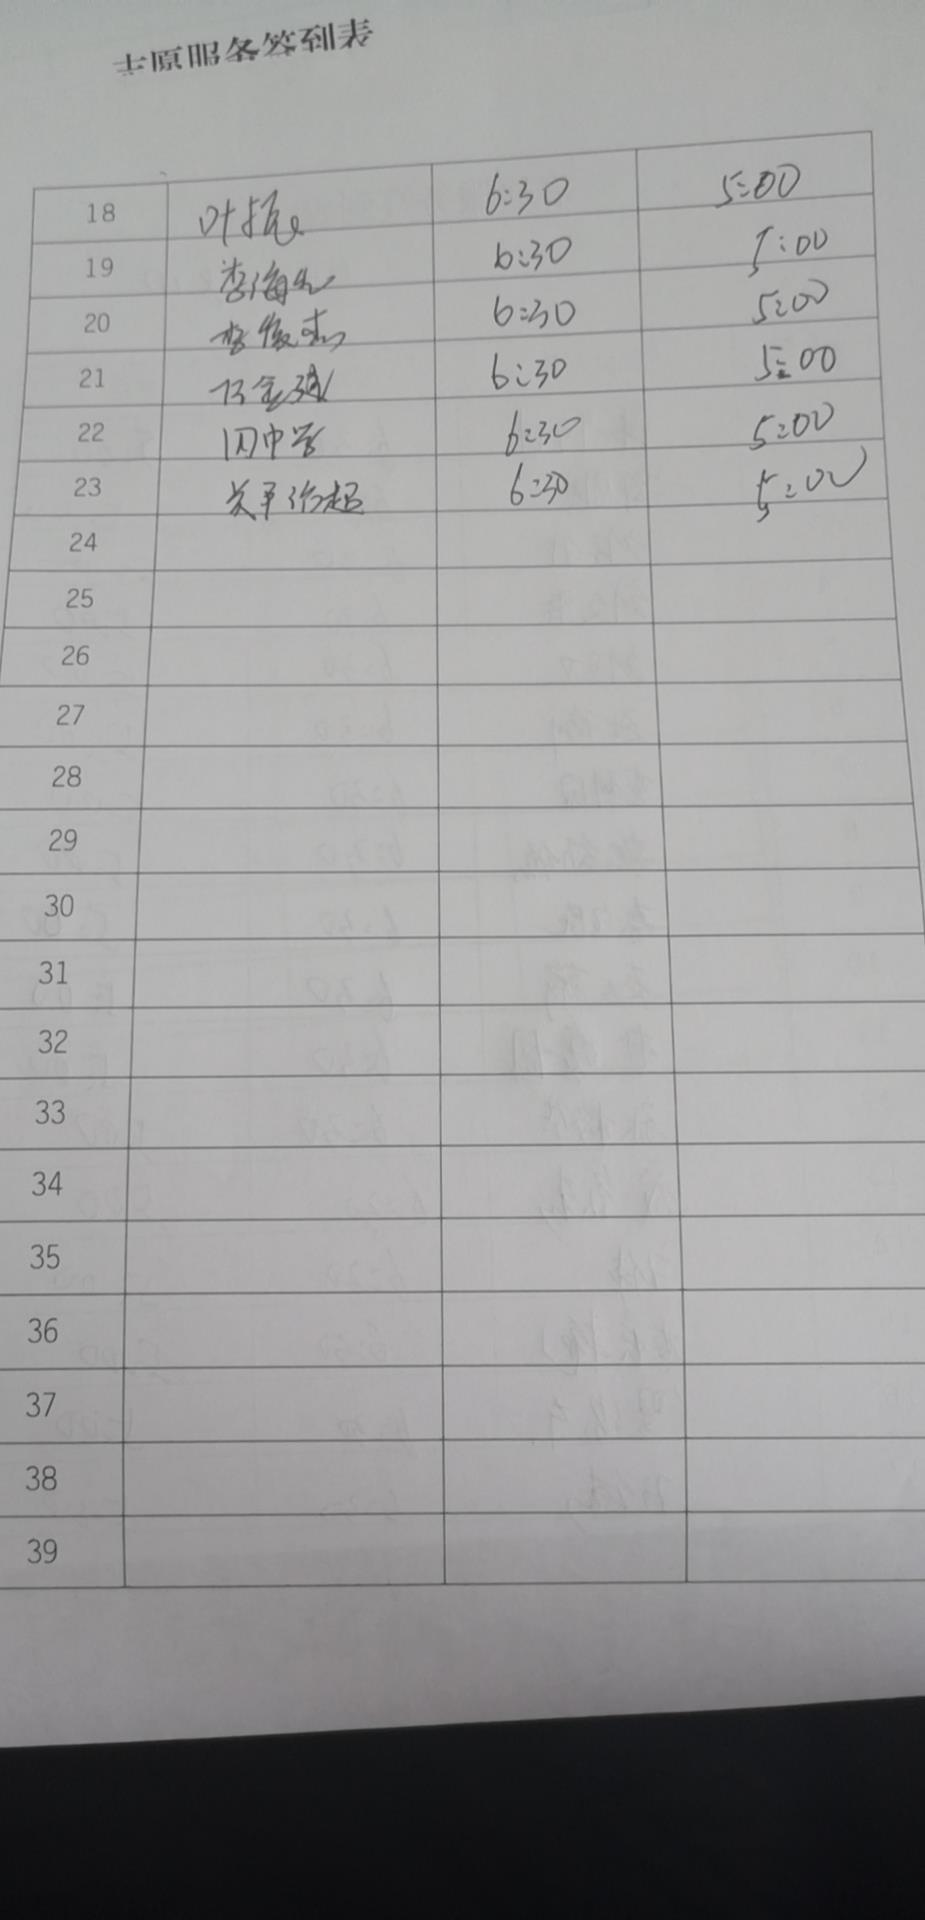 志愿服务签到表
18 叶振 6:30 5:00
19 李海 6:30 5:00
20 李俊杰 6:30 5:00
21 6:30 5:00
22 闪中学 6:30 5:00
23 关平治超 6:30 5:00
24
25
26
27
28
29
30
31
32
33
34
35
36
37
38
39